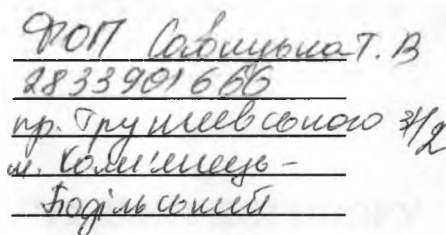 ФОП Савицька Т. В
2833901666
пр. Грушевського
м. Кам'янець-
Подільський